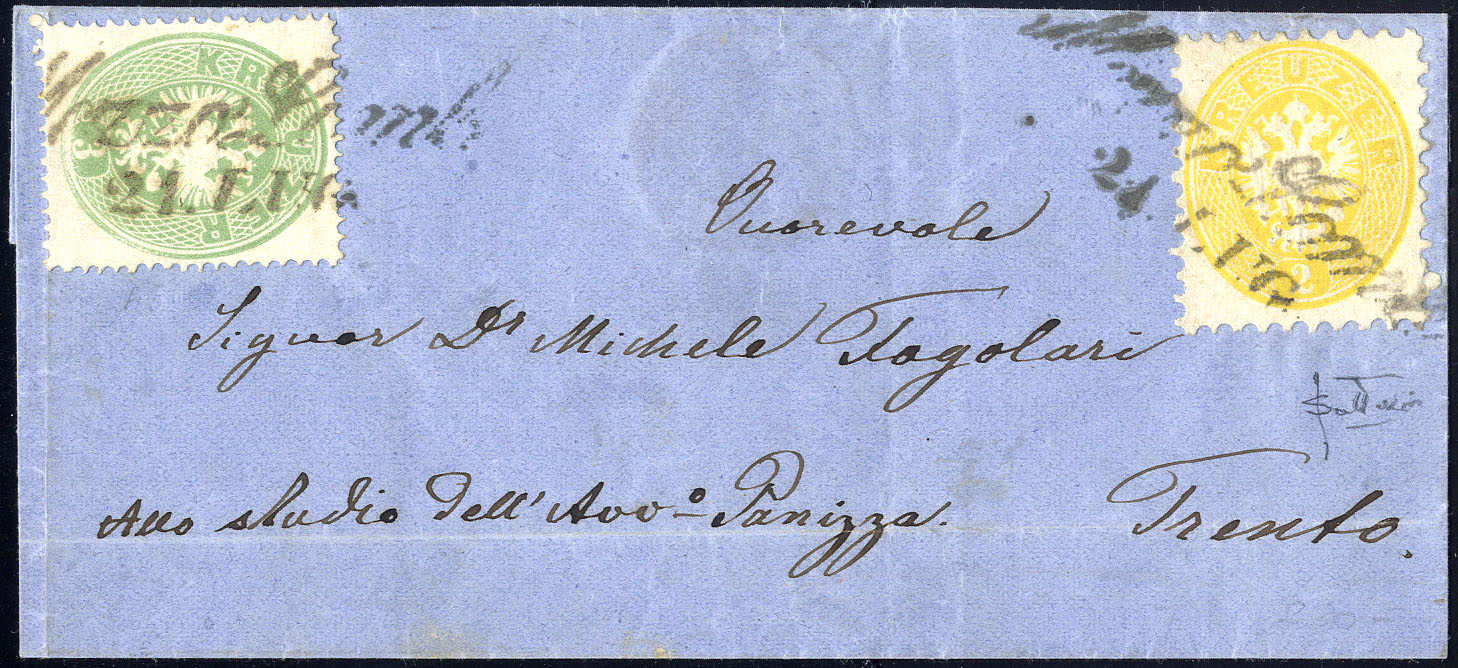 3 KREUZER
KREUZER 2
21. I.
21
Onorevole
Signor Dr Michele Fogolari
Allo studio Dell' Avvo Panizza.
Trento.